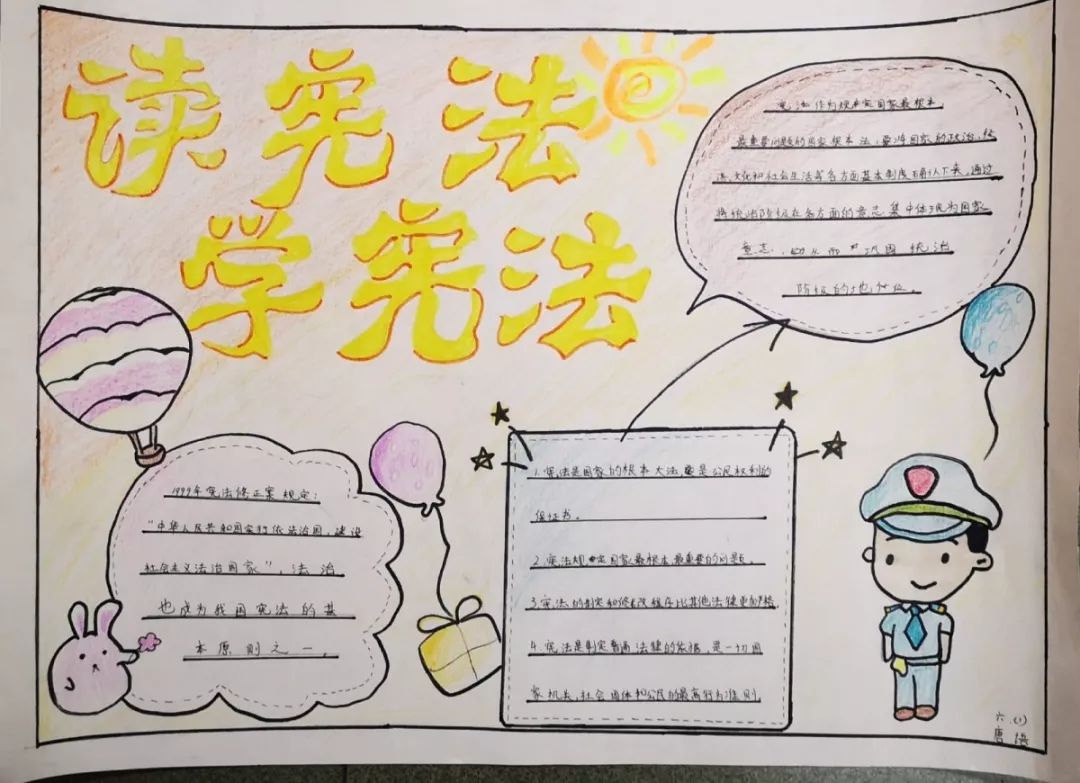 读宪法
学宪法
宪法作为规定国家最根本
最重要问题的国家根本法,要将国家的政治,经
济,文化和社会生活等各方面基本制度确认下来,通过
将统治阶级在各方面的意志集中体现为国家
意志,从而 巩固统治
阶级的地位。
1999年宪法修正案规定:
“中华人民共和国实行依法治国,建设
社会主义法治国家”,法治
也成为我国宪法的基
本原则之一。
1.宪法是国家的根本大法,是公民权利的
保证书。
2.宪法规定国家最根本最重要的问题。
3.宪法的制定和修改程序比其他法律更严格
4.宪法是制定普通法律的依据,是一切国
家机关,社会团体和公民的最高行为准则
六.(1)
唐